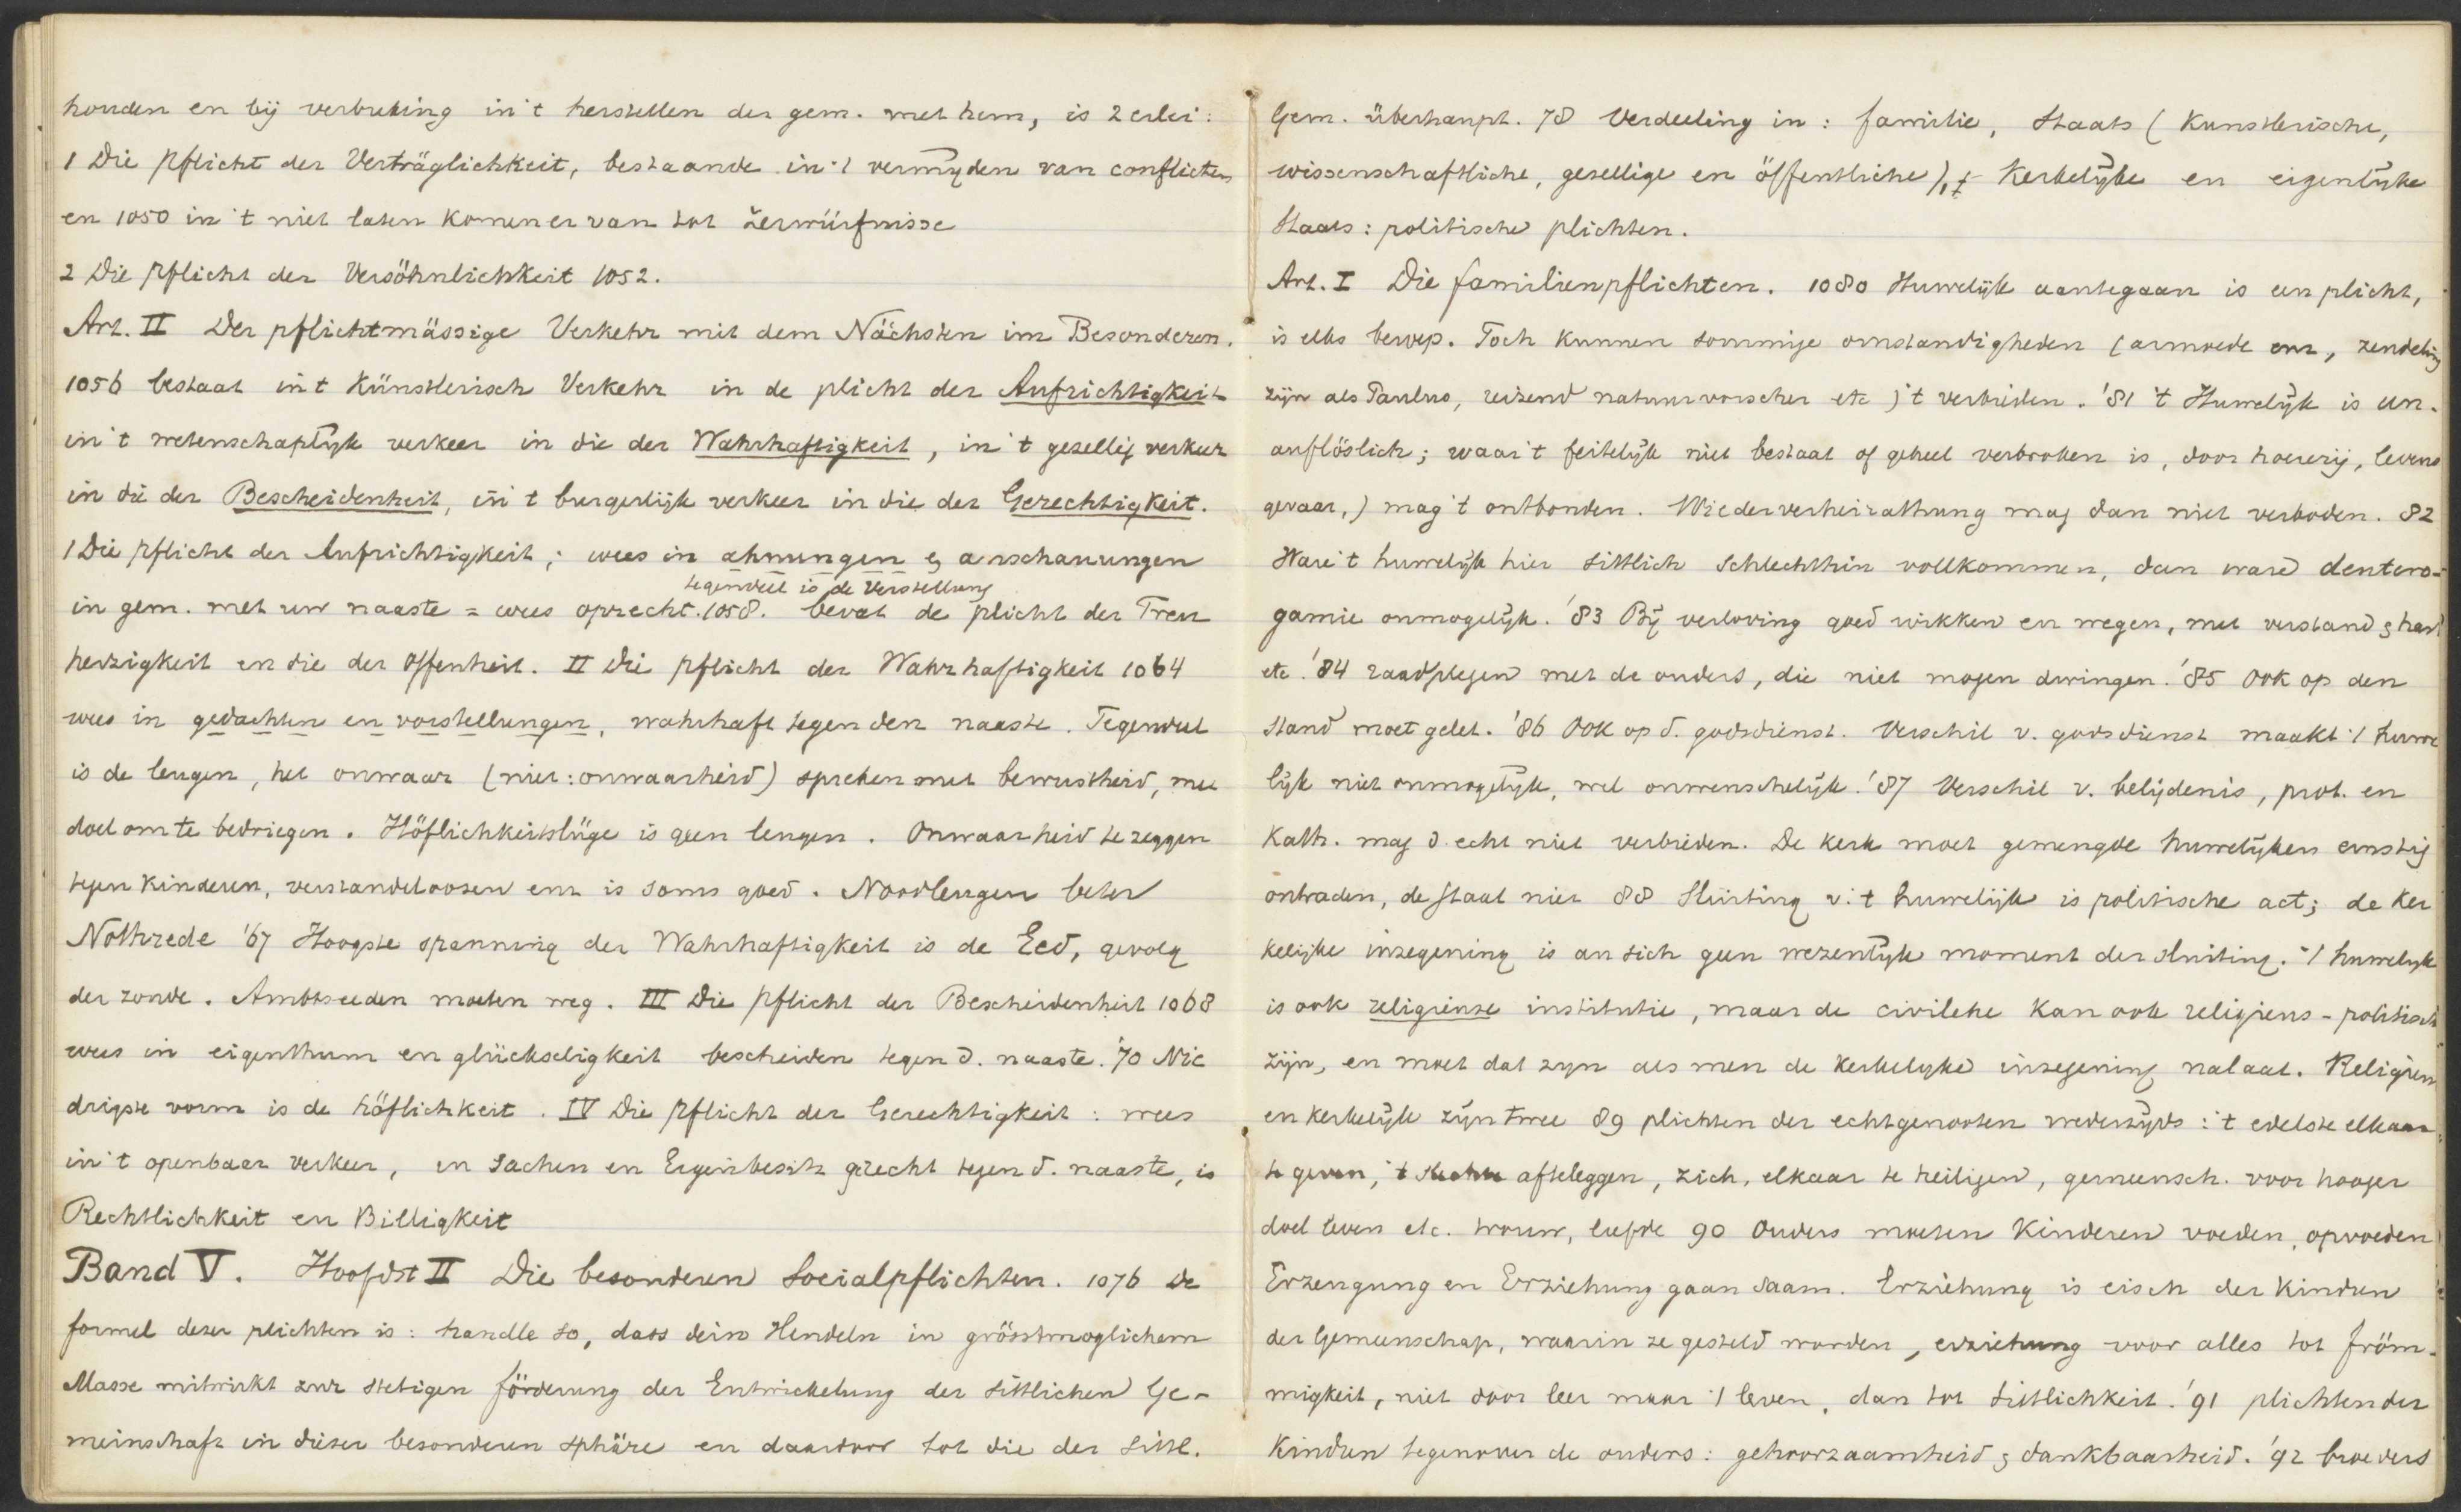 houden en bij verbreking in 't herstellen der gem. met hem, is 2 erlei:
1 Die Pflicht der Verträglichkeit, bestaande in 't vermijden van conflicten
en 1050 in 't niet laten komen er van tot Zerwürfnisse
2 Die Pflicht der Versöhnlichkeit 1052.
Art. II Der pflichtmässige Verkehr mit dem Nächsten im Besonderen.
1056 bestaat in t Künstlerisch Verkehr in de plicht der Aufrichtigkeit
in 't wetenschaplijk verkeer in die der Wahrhaftigkeit, in 't gezellig verkeer
in die der Bescheidenheit, in t burgerlijk verkeer in die der Gerechtigkeit.
1 Die Pflicht der Aufrichtigkeit; wees in ahnungen & anschauungen
tegendeel is de Verstellung
in gem. met uw naaste = wees oprecht. 1058. bevat de plicht der Treu
herzigkeit en die der Offenheit. II Die Pflicht der Wahrhaftigkeit 1064
wees in gedachten en vorstellungen, wahrhaft tegen den naaste. Tegendeel
is de leugen, het onwaar (niet: onwaarheid) spreken met bewustheid, met
doel om te bedriegen. Höflichkeitslüge is geen leugen. Onwaarheid te zeggen
tegen Kinderen, verstandeloozen enz is soms goed. Noodleugen beter
Nothrede '67 Hoogste spanning der Wahrhaftigkeit is de Eed, gevolg
der zonde. Ambtseeden moeten weg. III Die Pflicht der Bescheidenheit 1068
wees in eigenthum en glückseligkeit bescheiden tegen d. naaste. '70 Nie
drigste vorm is de Höflichkeit. IV Die Pflicht der Gerechtigkeit: wees
in 't openbaar verkeer, in Sachen en Eigenbesitz gerecht tegen d. naaste, is
Rechtlichkeit en Billigkeit
Band V. Hoofdst II Die besonderen Socialpflichten. 1076 De
formel dezer plichten is: handle so, dass dein Handeln in grösstmoglichem
Masse mitwirkt zur stetigen förderung der Entwickelung der sittlichen Ge-
meinschaft in dieser besonderen Sphäre en daardoor tot die der Sittl.
Gem. überhaupt. 78 Verdeeling in: familie, Staats (Kunstlerische,
wissenschaftliche, gesellige en öffentliche), + Kerkelijke en eigenlijke
Staats: politische plichten.
Art. I Die familienpflichten. 1080 Huwelijk aantegaan is een plicht,
is elks beroep. Toch kunnen sommige omstandigheden (armoede enz, zendeling
zijn als Paulus, reizend natuurvorscher etc) 't verbieden. '81 't Huwelijk is un-
auflöslich; waar 't feitelijk niet bestaat of geheel verbroken is, door hoererij, levens
gevaar,) mag 't ontbonden. Wiederverheirathung mag dan niet verboden. 82
Ware 't huwelijk hier sittlich schlechthin vollkommen, dan ware deutero-
gamie onmogelijk. '83 Bij verloving goed wikken en wegen, met verstand & hart
etc. '84 raadplegen met de ouders, die niet mogen dwingen. '85 Ook op den
stand moet gelet. '86 Ook op d. godsdienst. Verschil v. godsdienst maakt 't huwe
lijk niet onmogelijk, wel onwenschelijk. '87 Verschil v. belijdenis, prot. en
Kath. mag d. echt niet verbieden. De kerk moet gemengde huwelijken ernstig
ontraden, de staat niet 88 Sluiting v. 't huwelijk is politische act; de Ker
kelijke inzegening is an sich geen wezenlijk moment der sluiting. 't huwelijk
is ook religieuse institutie, maar de civilehe kan ook religieus-politisch
zijn, en moet dat zijn als men de kerkelijke inzegening nalaat. Religieus
en kerkelijk zijn twee 89 plichten der echtgenooten wederzijds: 't edelste elkaar
te geven, 't slechte afteleggen, zich, elkaar te heiligen, gemeensch. voor hooger
doel leven etc. trouw, liefde 90 Ouders moeten Kinderen voeden, opvoeden
Erzeugung en Erziehung gaan saam. Erziehung is eisch der Kindren
der Gemeenschap, waarin ze gesteld worden, erziehung voor alles tot fröm-
migkeit, niet door leer maar 't leven, dan tot Sittlichkeit. '91 plichten der
Kindren tegenover de ouders: gehoorzaamheid & dankbaarheid. '92 broeders